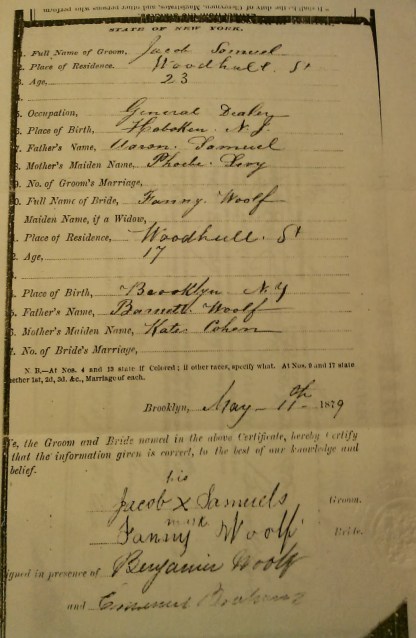 STATE OF NEW YORK.
1. Full Name of Groom, Jacob Samuel
2. Place of Residence, Woodhull St
3. Age, 23
5. Occupation, General Dealer
6. Place of Birth, Hoboken N. J.
7. Father's Name, Aaron Samuel
8. Mother's Maiden Name, Phoebe Levy
9. No. of Groom's Marriage,
0. Full Name of Bride, Fanny Woolf
Maiden Name, if a Widow,
1. Place of Residence, Woodhull St
2. Age, 17
Place of Birth, Brooklyn N.Y
5. Father's Name, Barnett Woolf
6. Mother's Maiden Name, Kate Cohen
7. No. of Bride's Marriage,
N. B.—At Nos. 4 and 13 state if Colored; if other races, specify what. At Nos. 9 and 17 state
hether 1st, 2d, 3d, &c., Marriage of each.
Brooklyn, May 11th 1879
We, the Groom and Bride named in the above Certificate, hereby Certify
that the information given is correct, to the best of our knowledge and
belief.
his
Jacob X Samuels Groom.
mark
Fanny Woolf Bride.
igned in presence of Benjamin Woolf
and